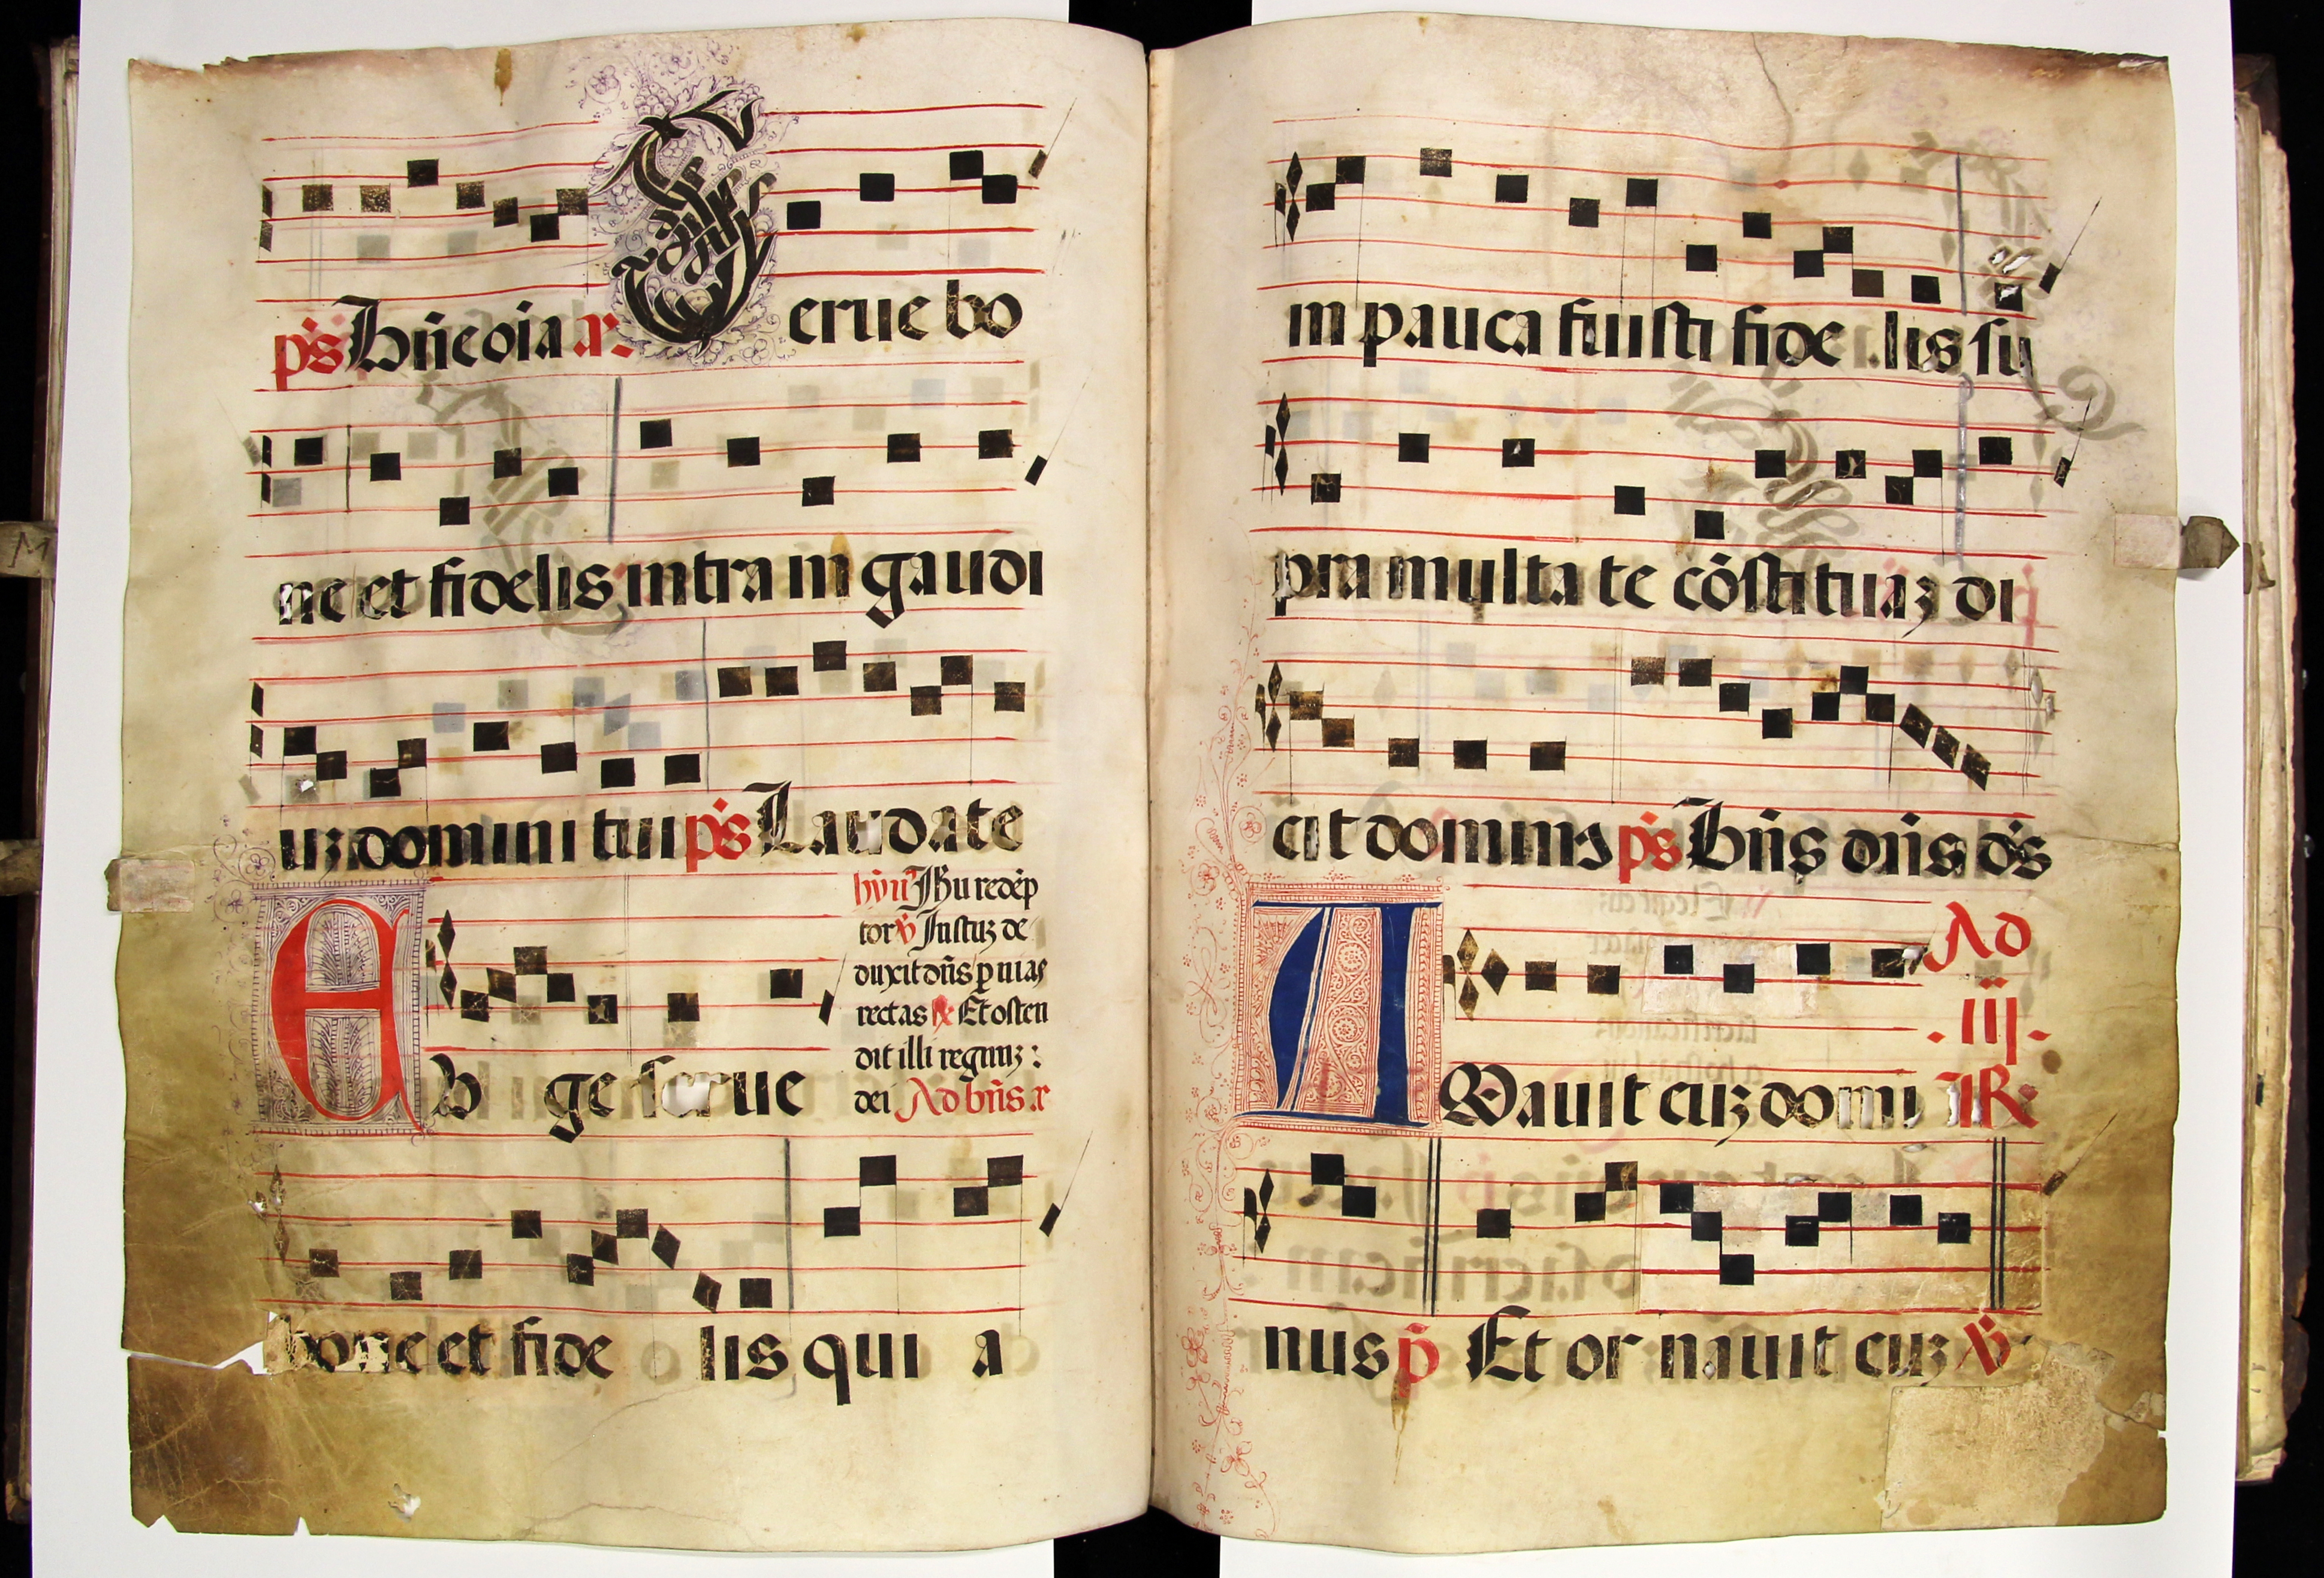 p̄s Bñe oīa a. Serue bo
ne et fidelis intra in gaudi
uȝ domini tui p̄s Laudate
hym̄ Jhu redēp
tor ℣ Justuȝ de
duxit dñs p uias
rectas ℟ Et osten
dit illi regnuȝ :
dei Ad bñs a
Euge serue
bone et fide lis qui a
in pauca fuisti fide lis su
pra multa te cōstituaȝ di
cit dominꝰ p̄s Bñs dñs ds̄
Ad
.iij.
AMauit euȝ domi ℟
nus p̄ Et or nauit euȝ ℣